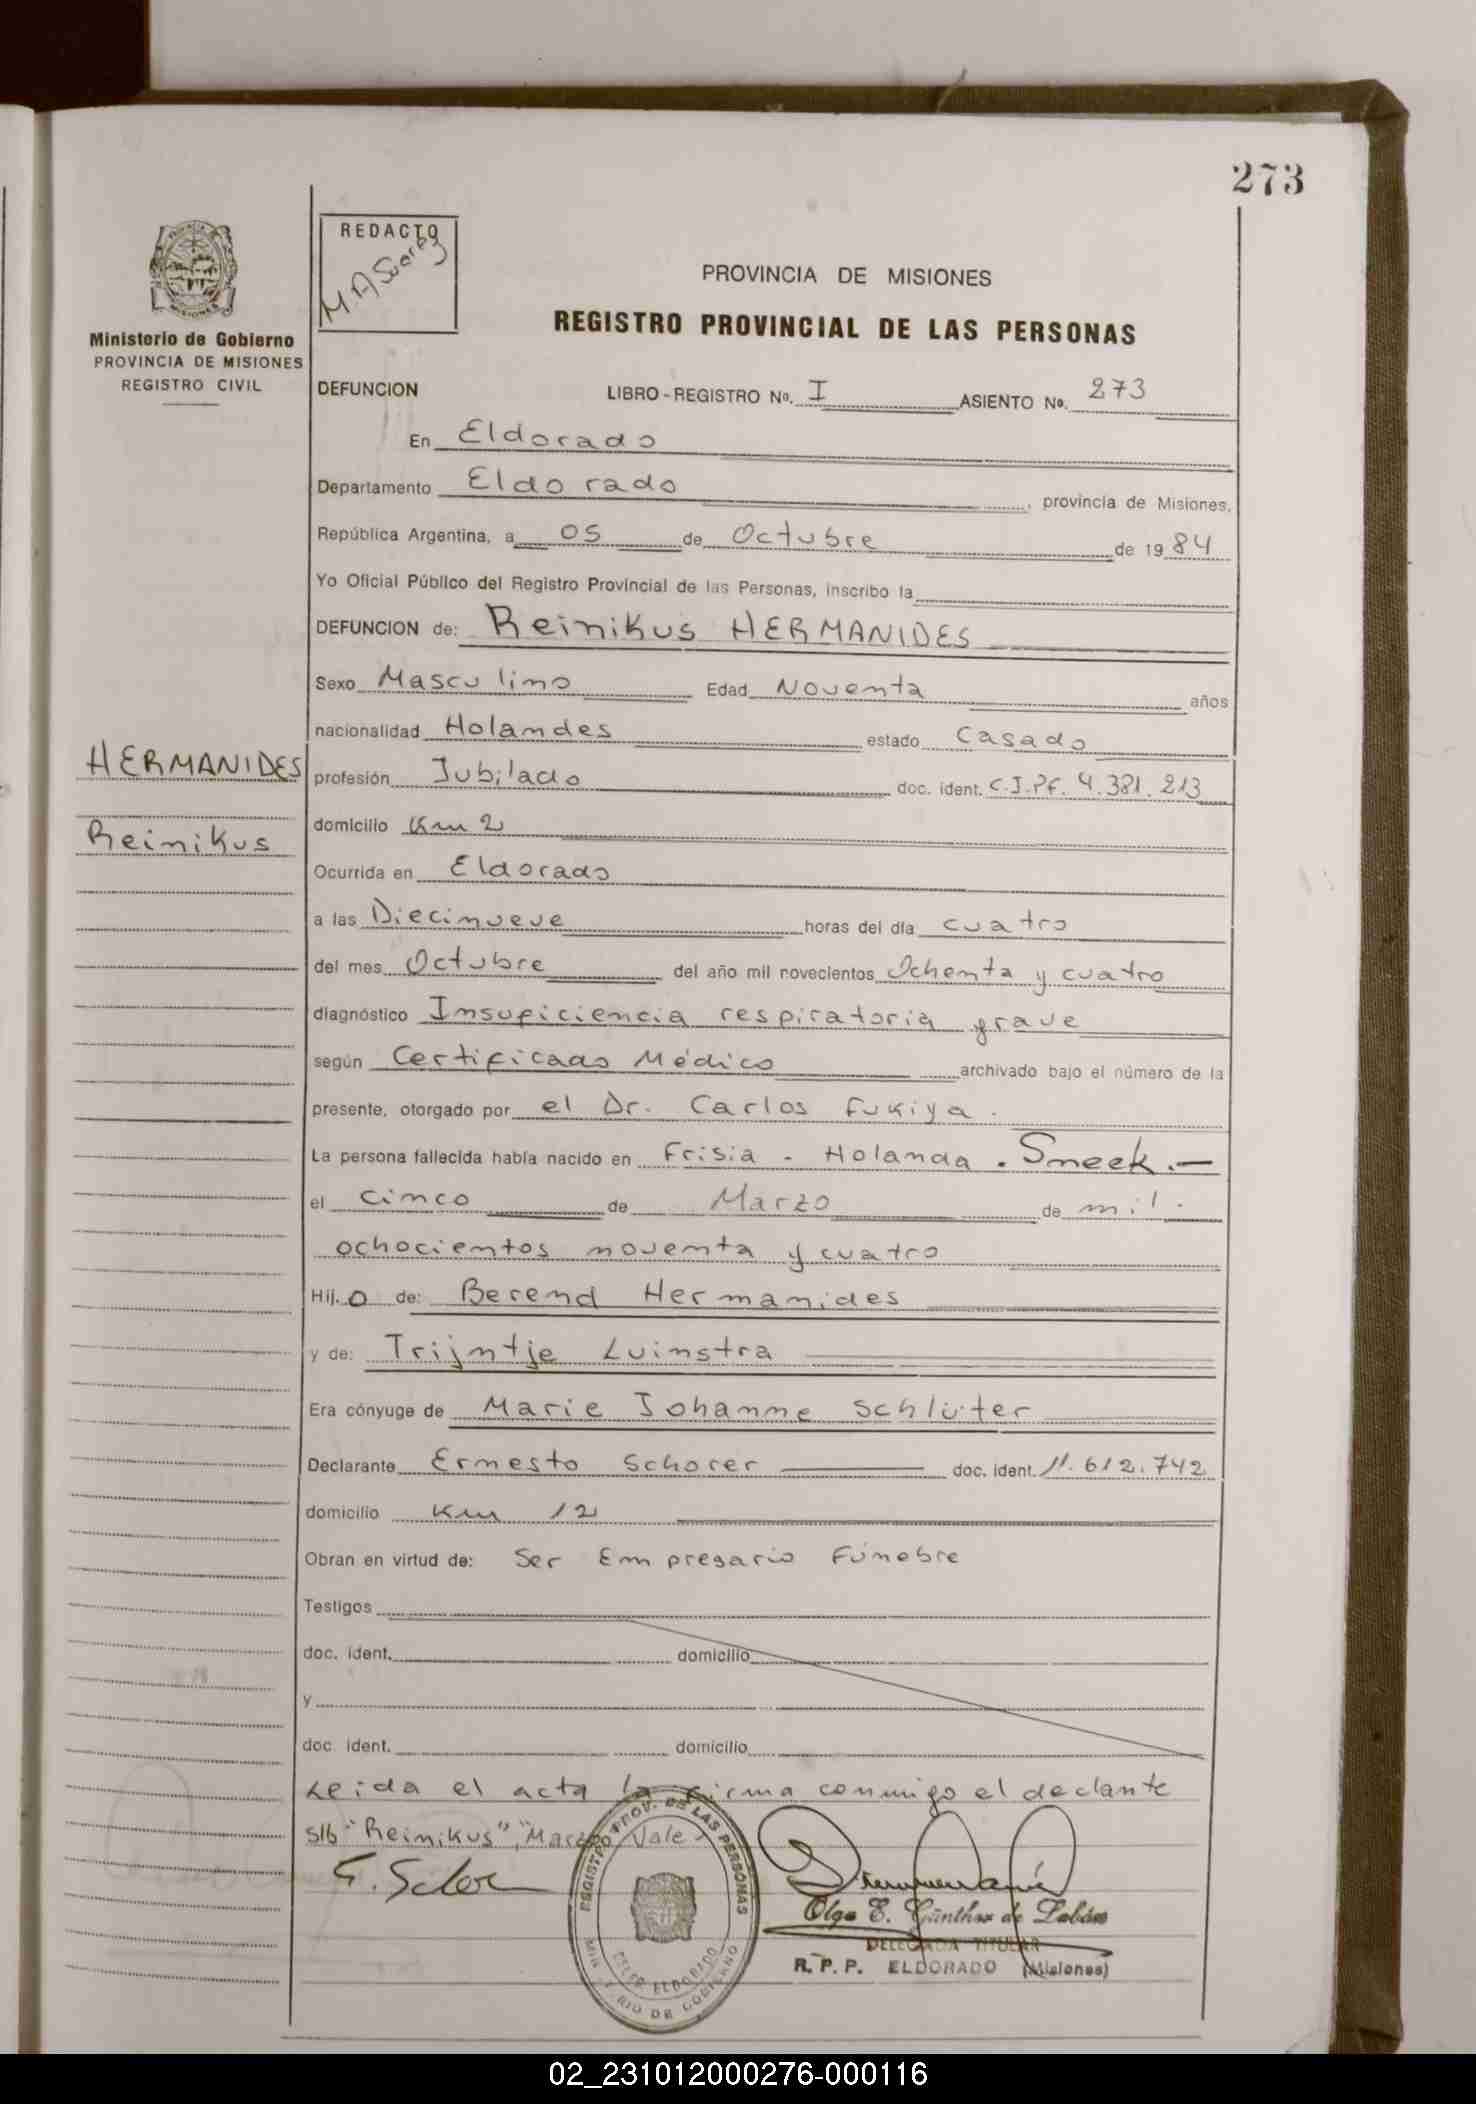 273
REDACTO
M.A Suarez
MISIONES
Ministerio de Gobierno
PROVINCIA DE MISIONES
REGISTRO CIVIL
PROVINCIA DE MISIONES
REGISTRO PROVINCIAL DE LAS PERSONAS
DEFUNCION LIBRO-REGISTRO Nº. I ASIENTO Nº. 273
En Eldorado
Departamento Eldorado, provincia de Misiones,
República Argentina, a 05 de Octubre de 1984
Yo Oficial Público del Registro Provincial de las Personas, inscribo la
DEFUNCION de: Reinikus HERMANIDES
Sexo Masculino Edad Noventa años
nacionalidad Holandes estado Casado
HERMANIDES
Reinikus
profesión Jubilado doc. ident. C.I.PF. 4.381.213
domicilio Km 2
Ocurrida en Eldorado
a las Diecinueve horas del día cuatro
del mes Octubre del año mil novecientos Ochenta y cuatro
diagnóstico Insuficiencia respiratoria grave
según Certificado Médico archivado bajo el número de la
presente, otorgado por el Dr. Carlos Fukiya.
La persona fallecida había nacido en Frisia - Holanda. Sneek.-
el cinco de Marzo de mil
ochocientos noventa y cuatro
Hij.o de: Berend Hermanides
y de: Trijntje Luinstra
Era cónyuge de Marie Johanne Schlüter
Declarante Ernesto Schorer doc. ident. 11.612.742
domicilio Km 12
Obran en virtud de: Ser Empresario Fúnebre
Testigos
doc. ident. domicilio
y
doc. ident. domicilio
Leida el acta la firma conmigo el declante
s/b "Reinikus", "Marzo" Vale
REGISTRO PROV. DE LAS PERSONAS
DELEG. ELDORADO
MINISTERIO DE GOBIERNO
Olga E. Günther de Labán
DELEGADA TITULAR
R.P.P. ELDORADO (Misiones)
02_231012000276-000116